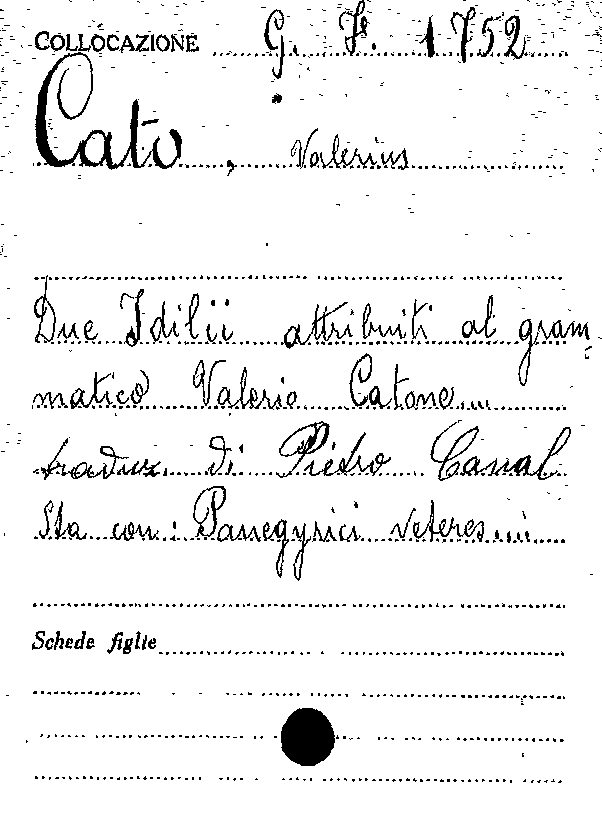 COLLOCAZIONE G. F. 1752
Cato, Valerius
Due Idilii attribuiti al gram=
matico Valerio Catone...
traduz. di Pietro Canal
Sta con: Panegyrici veteres....
Schede figlie